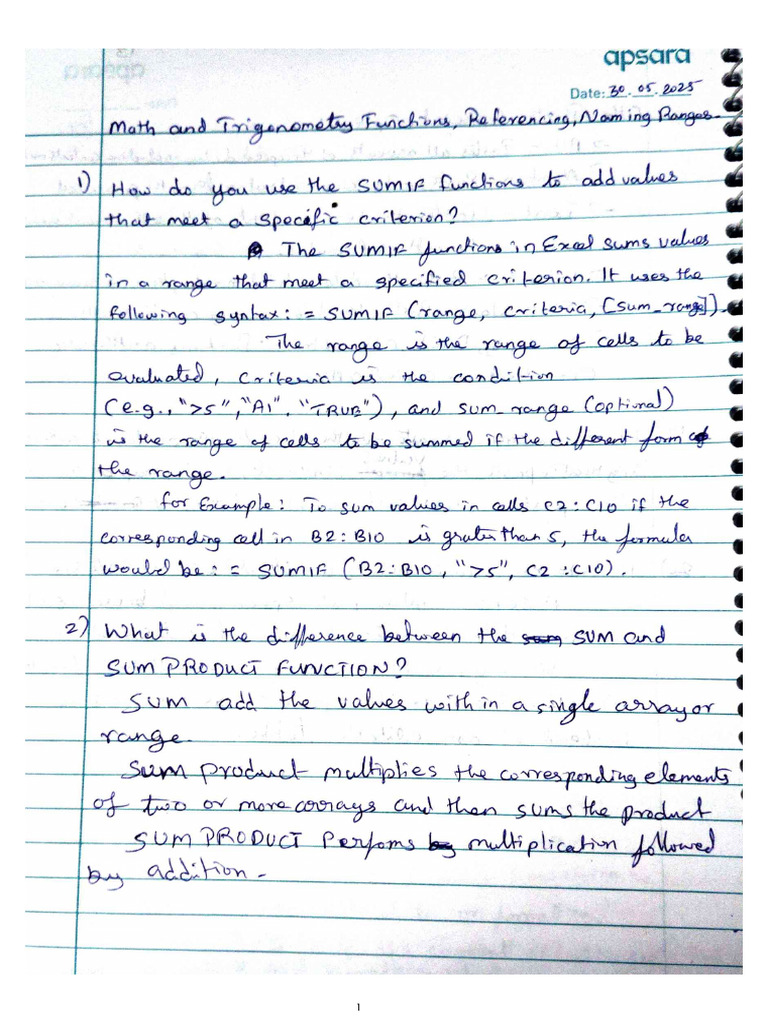 apsara
Date: 30.05.2025
Math and Trigonometry Functions, Referencing, Naming Ranges.
1) How do you use the SUMIF functions to add values
that meet a specific criterion?
The SUMIF functions in Excel sums values
in a range that meet a specified criterion. It uses the
following syntax: = SUMIF (range, criteria, [sum_range]).
The range is the range of cells to be
evaluated, criteria is the condition
(e.g., ">5", "A1", "TRUE"), and sum_range (optional)
is the range of cells to be summed if the different form of
the range.
for Example: To sum values in cells C2:C10 if the
corresponding cell in B2:B10 is grater than 5, the formula
would be: = SUMIF (B2:B10, ">5", C2:C10).
2) What is the difference between the SUM and
SUMPRODUCT FUNCTION?
SUM add the values within a single array or
range.
Sum product multiplies the corresponding elements
of two or more arrays and then sums the product
SUMPRODUCT Perfoms multiplication followed
by addition.
1